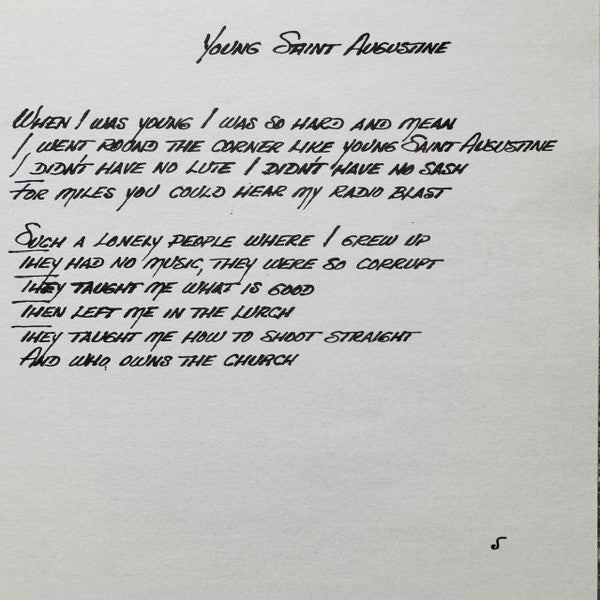 Young Saint Augustine
When I was young I was so hard and mean
I went round the corner like young Saint Augustine
I didn't have no lute I didn't have no sash
For miles you could hear my radio blast
Such a lonely people where I grew up
They had no music, they were so corrupt
They taught me what is good
Then left me in the lurch
They taught me how to shoot straight
And who owns the church
5